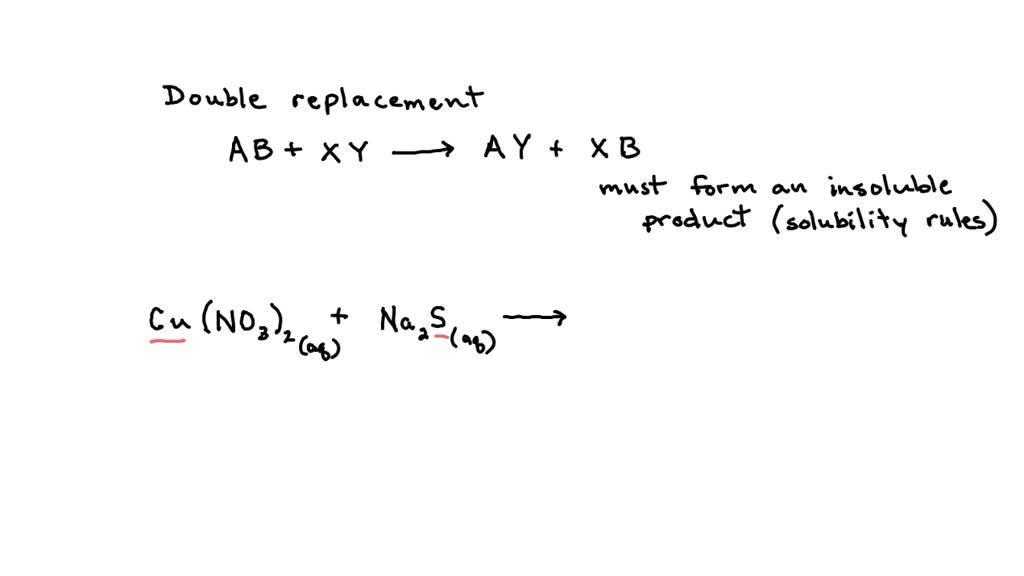 Double replacement
AB + XY ⟶ AY + XB
must form an insoluble
product (solubility rules)
Cu(NO₃)₂(aq) + Na₂S(aq) ⟶